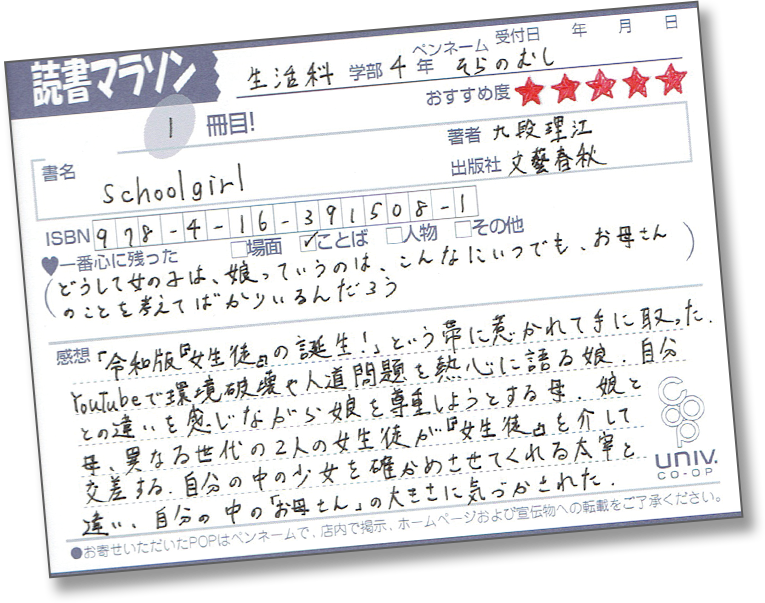 読書マラソン
生活科 学部 4 年 ペンネーム そらのむし 受付日 年 月 日
おすすめ度 ★★★★★
1 冊目!
書名 Schoolgirl
著者 九段理江
出版社 文藝春秋
ISBN 978-4-16-391508-1
♥一番心に残った □場面 ☑ことば □人物 □その他
(どうして女の子は、娘っていうのは、こんなにいつでも、お母さん
のことを考えてばかりいるんだろう)
感想 「令和版『女生徒』の誕生!」という帯に惹かれて手に取った.
YouTubeで環境破壊や人道問題を熱心に語る娘. 自分
との違いを感じながら娘を尊重しようとする母. 娘と
母、異なる世代の2人の女生徒が『女生徒』を介して
交差する. 自分の中の少女を確かめさせてくれる太宰と
違い、自分の中の「お母さん」の大きさに気づかされた.
coop
UNIV.
CO-OP
●お寄せいただいたPOPはペンネームで、店内で掲示、ホームページおよび宣伝物への転載をご了承ください。